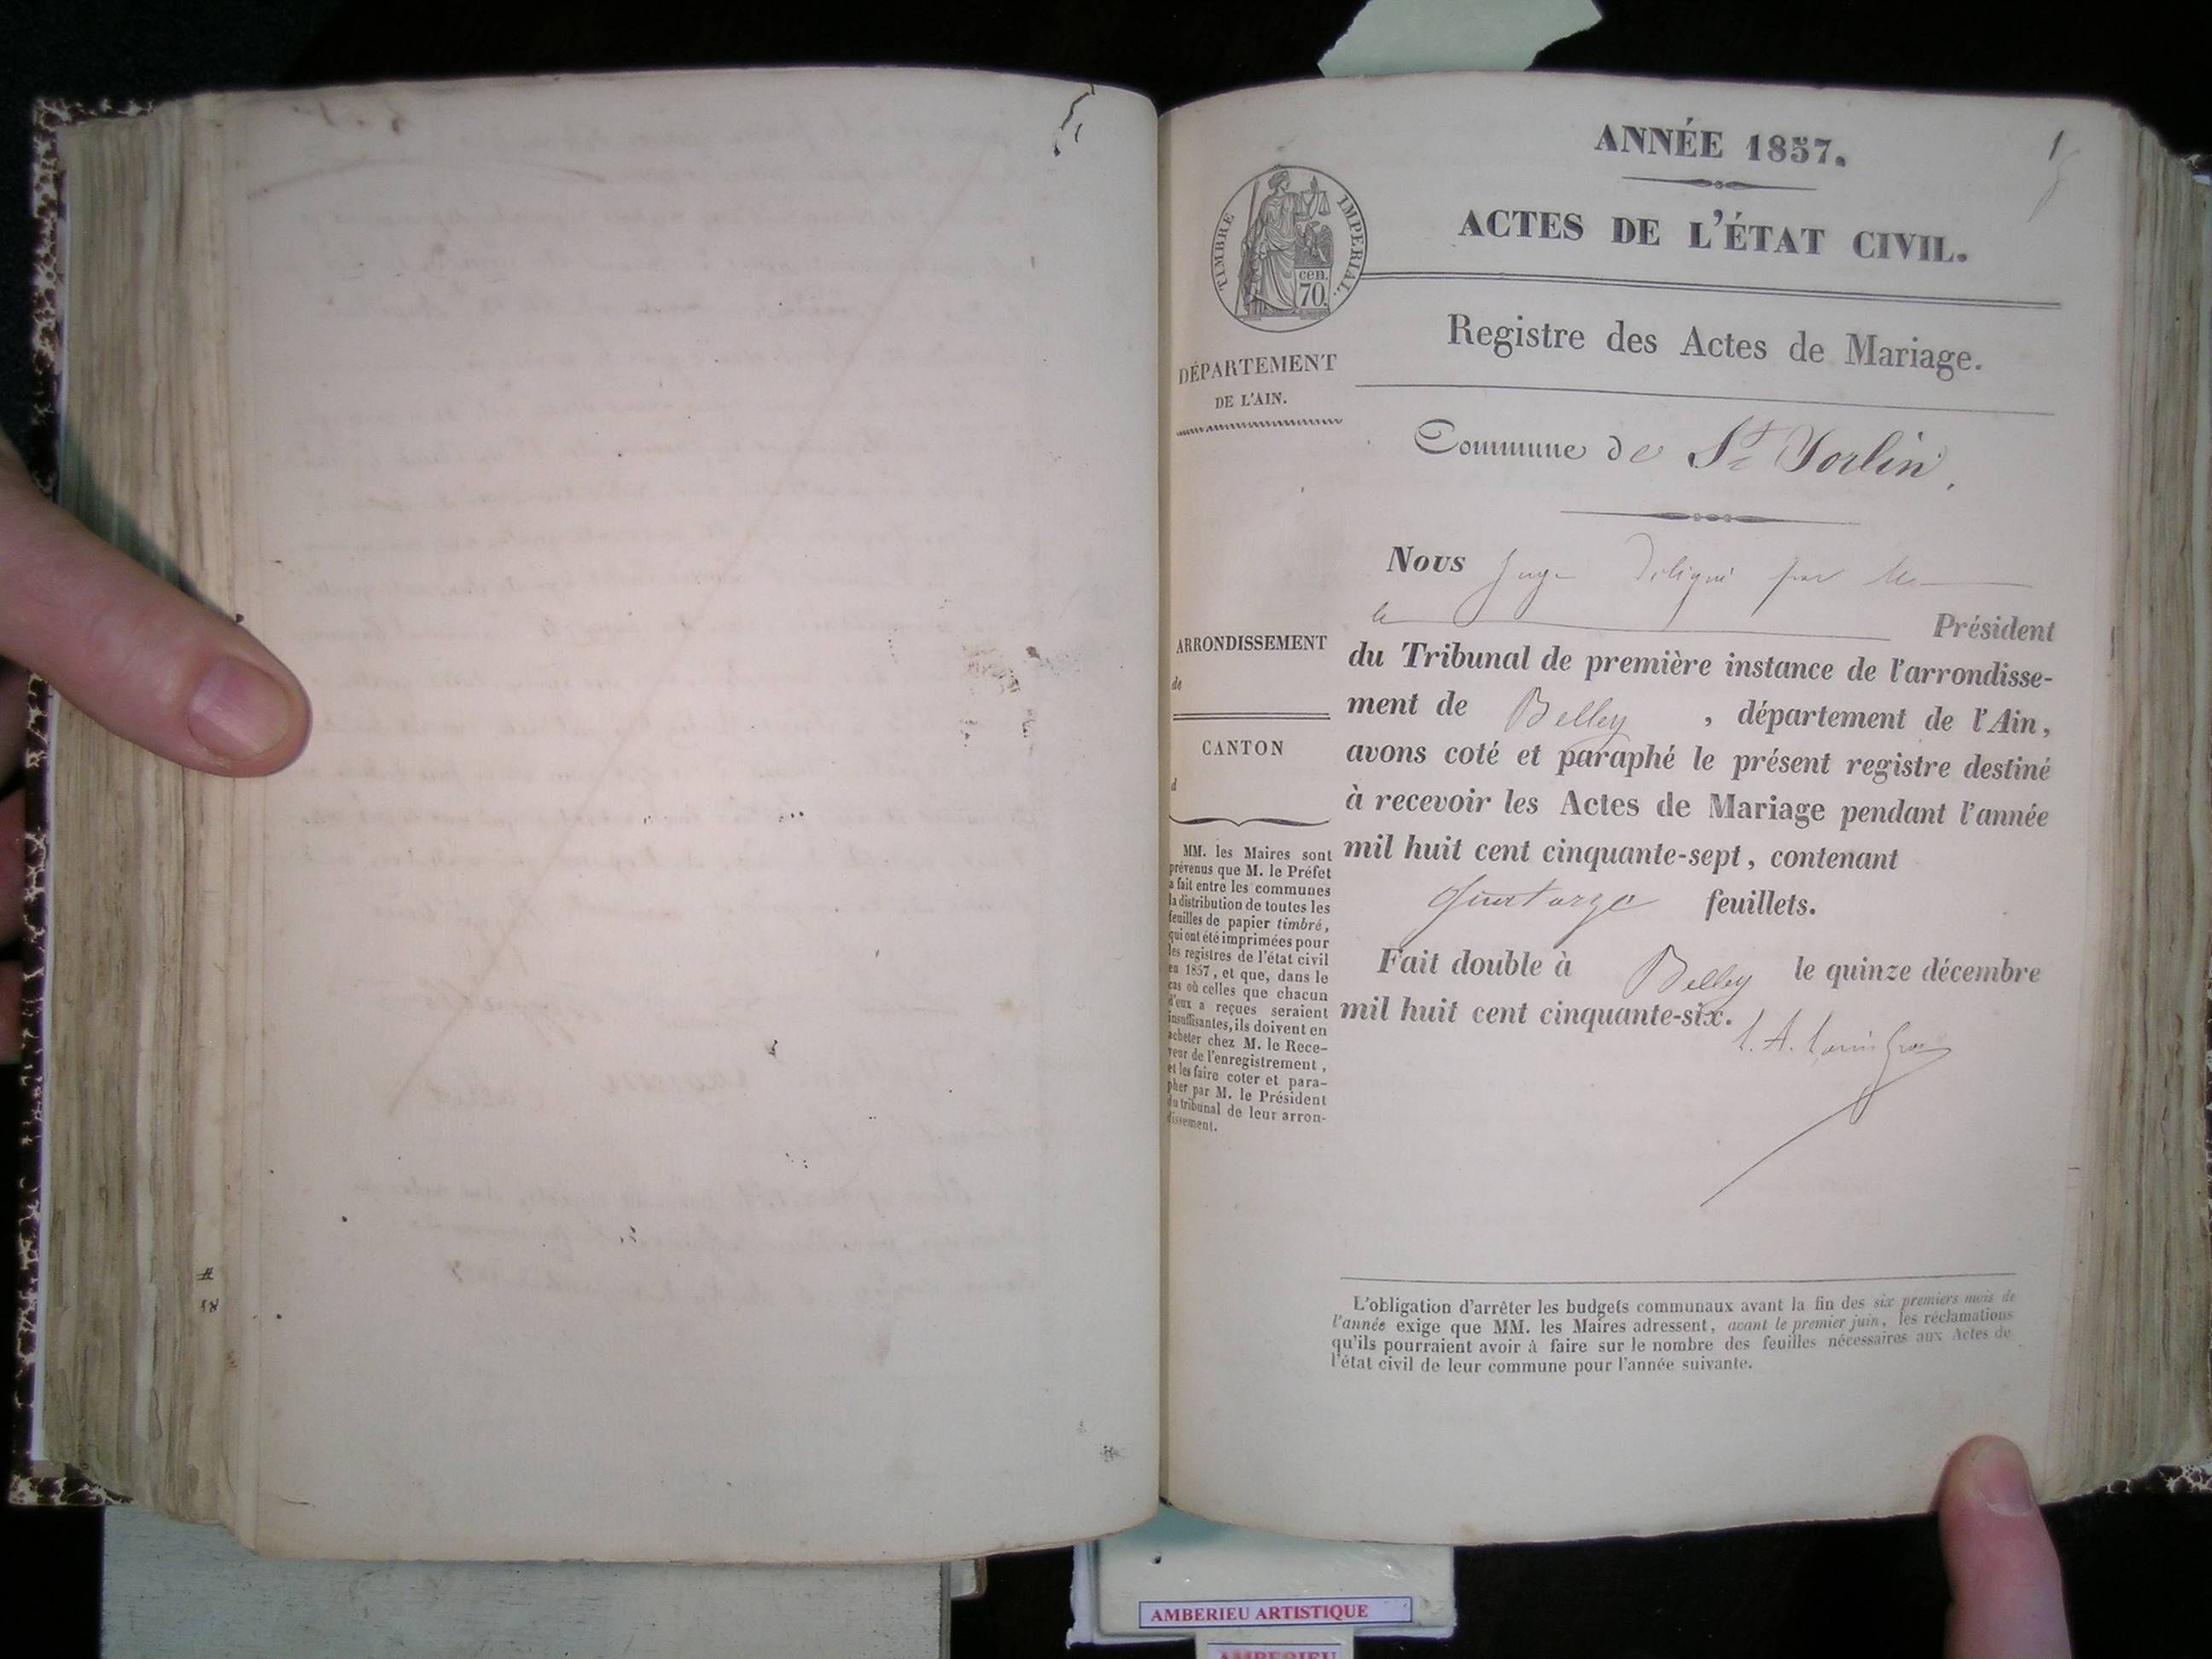 ANNÉE 1857.
1
ACTES DE L'ÉTAT CIVIL.
TIMBRE IMPERIAL.
cen.
70.
Registre des Actes de Mariage.
DÉPARTEMENT
DE L'AIN.
Commune de St Sorlin.
Nous Juge délégué par Mr
le Président
du Tribunal de première instance de l'arrondisse-
ment de Belley, département de l'Ain,
avons coté et paraphé le présent registre destiné
à recevoir les Actes de Mariage pendant l'année
mil huit cent cinquante-sept, contenant
quatorze feuillets.
Fait double à Belley le quinze décembre
mil huit cent cinquante-six.
ARRONDISSEMENT
de
CANTON
d
MM. les Maires sont
prévenus que M. le Préfet
a fait entre les communes
la distribution de toutes les
feuilles de papier timbré,
qui ont été imprimées pour
les registres de l'état civil
en 1857, et que, dans le
cas où celles que chacun
d'eux a reçues seraient
insuffisantes, ils doivent en
acheter chez M. le Rece-
veur de l'enregistrement,
et les faire coter et para-
pher par M. le Président
du tribunal de leur arron-
dissement.
L'obligation d'arrêter les budgets communaux avant la fin des six premiers mois de
l'année exige que MM. les Maires adressent, avant le premier juin, les réclamations
qu'ils pourraient avoir à faire sur le nombre des feuilles nécessaires aux Actes de
l'état civil de leur commune pour l'année suivante.
AMBERIEU ARTISTIQUE
AMBERIEU